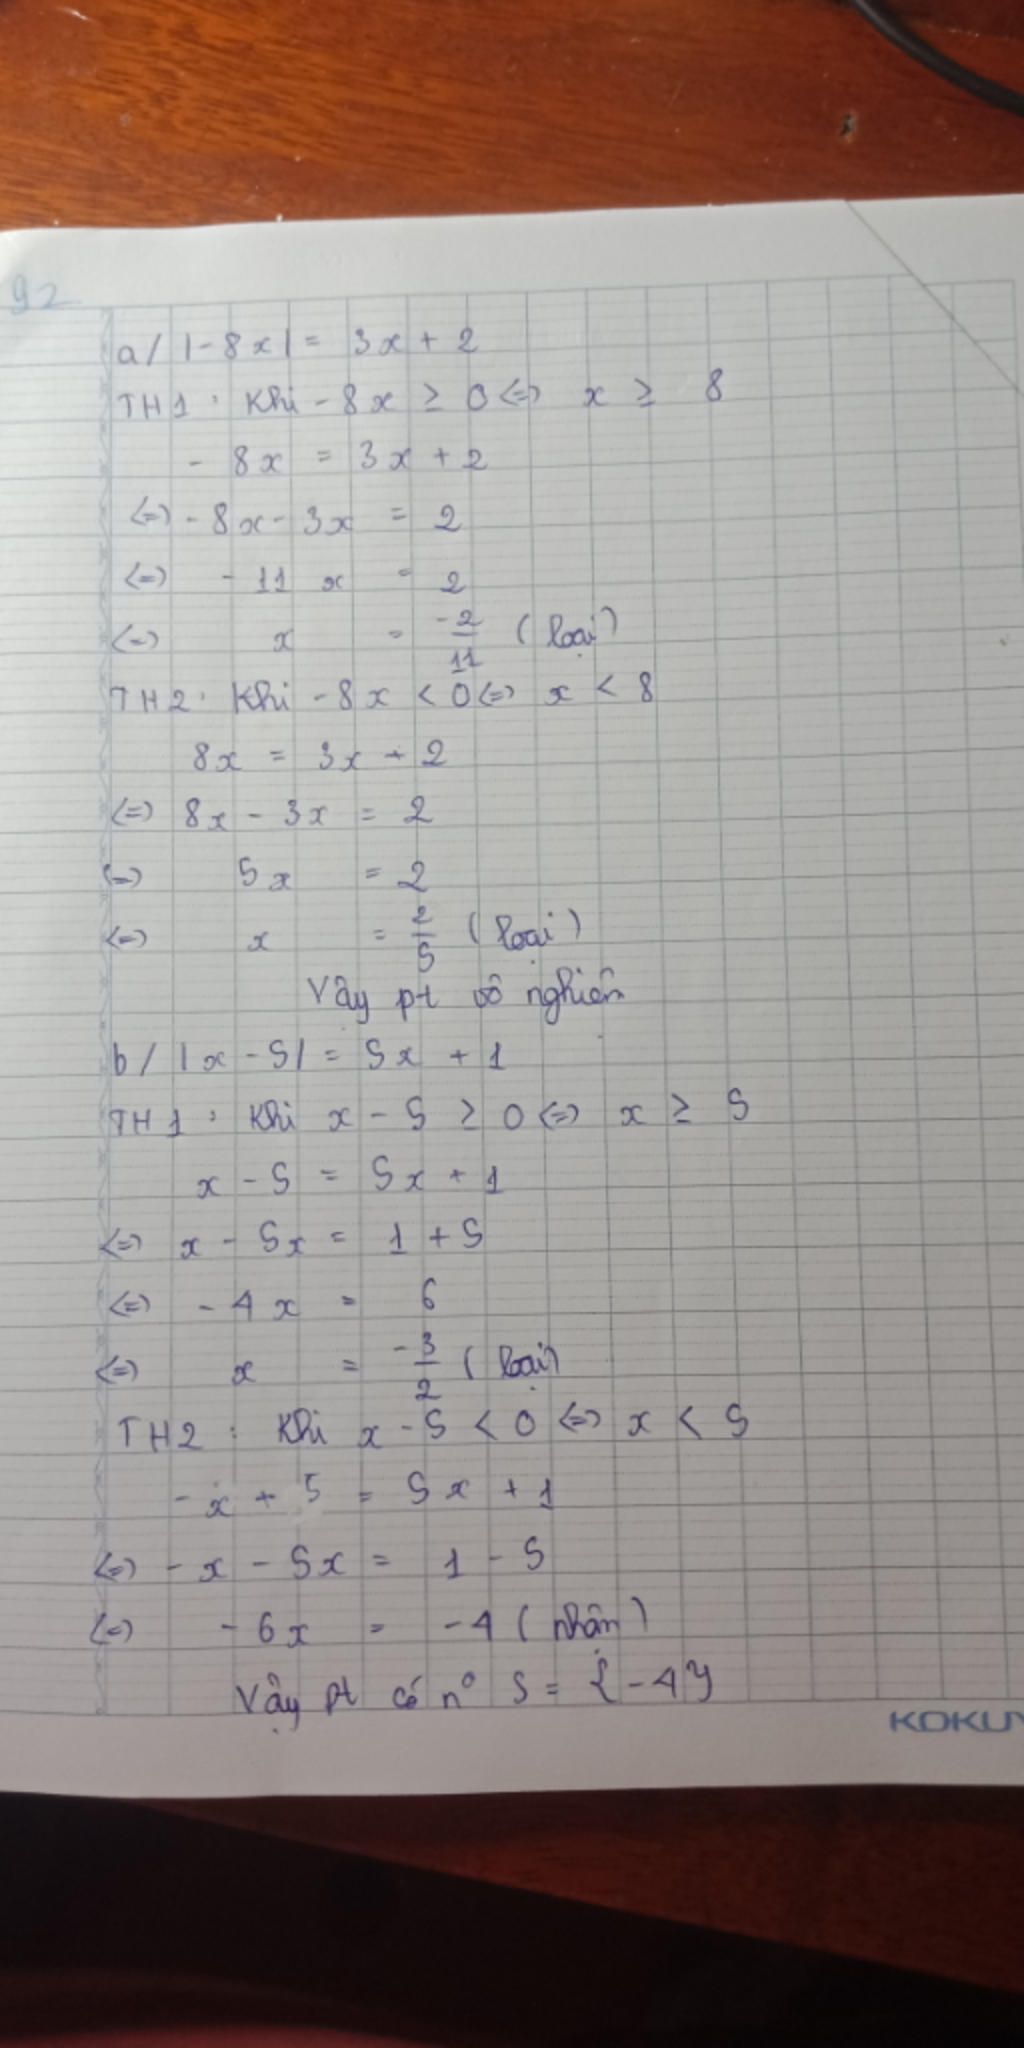 92
a/ |-8x| = 3x + 2
TH1 : Khi - 8x ≥ 0 <=> x ≥ 8
- 8x = 3x + 2
<=> - 8x - 3x = 2
<=> - 11 x = 2
<=> x = -2/11 (loại)
TH2 : Khi - 8x < 0 <=> x < 8
8x = 3x + 2
<=> 8x - 3x = 2
<=> 5x = 2
<=> x = 2/5 (loại)
Vậy pt vô nghiệm
b/ |x - 5| = 5x + 1
TH1 : Khi x - 5 ≥ 0 <=> x ≥ 5
x - 5 = 5x + 1
<=> x - 5x = 1 + 5
<=> - 4x = 6
<=> x = -3/2 (loại)
TH2 : Khi x - 5 < 0 <=> x < 5
- x + 5 = 5x + 1
<=> - x - 5x = 1 - 5
<=> - 6x = -4 (nhận)
Vậy pt có n° S = {-4}